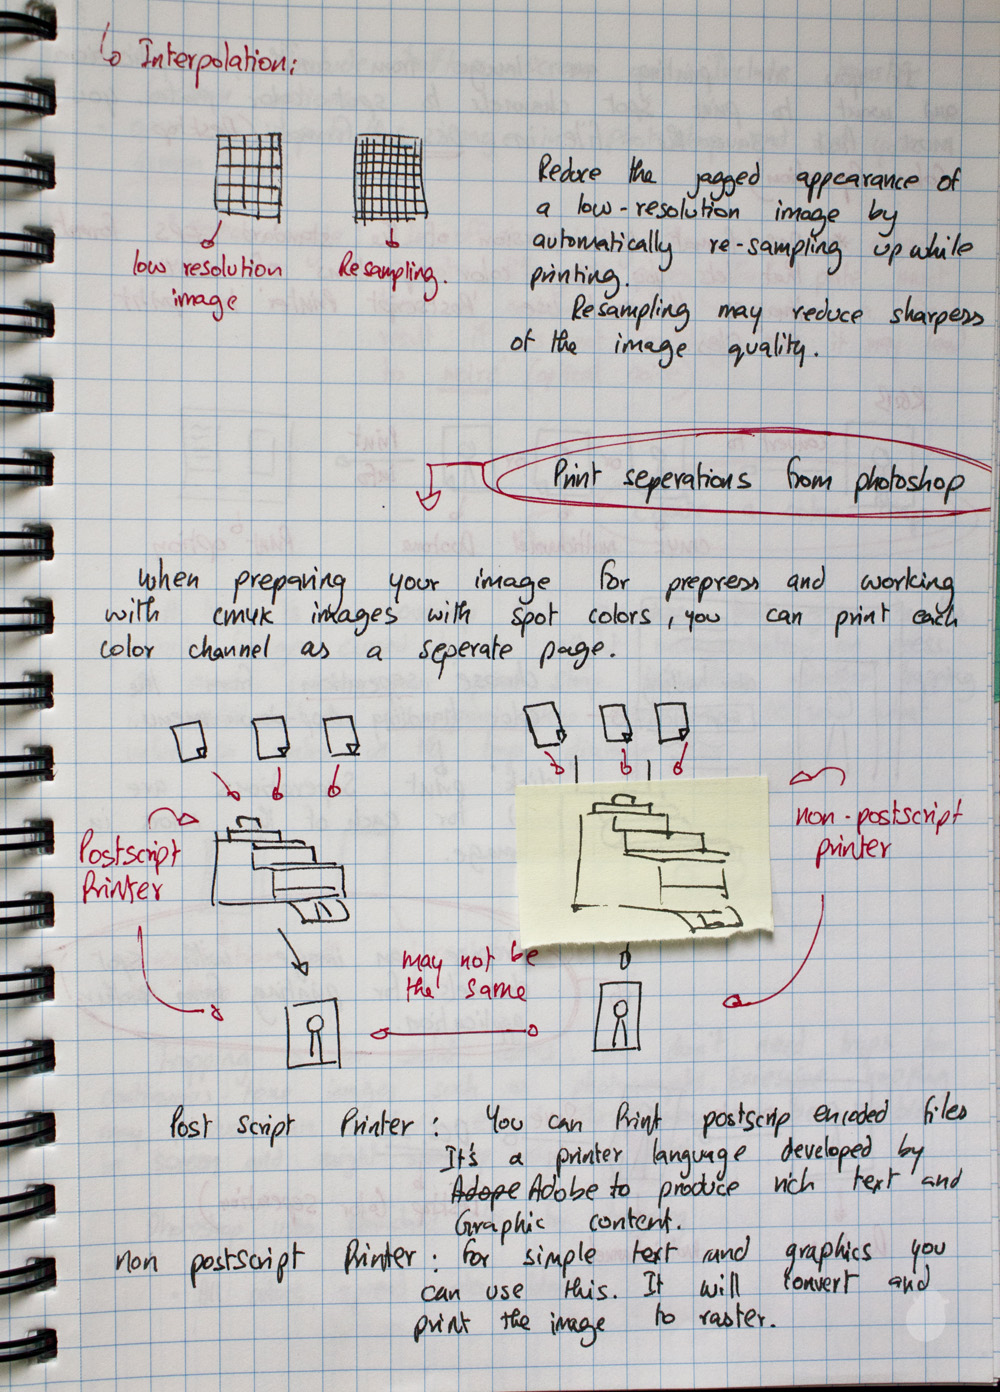 Interpolation:
low resolution
image
Resampling.
Reduce the jagged appearance of
a low-resolution image by
automatically re-sampling up while
printing.
Resampling may reduce sharpess
of the image quality.
Print seperations from photoshop
When preparing your image for prepress and working
with cmyk images with spot colors, you can print each
color channel as a seperate page.
Postscript
Printer
non-postscript
printer
may not be
the same
Post Script Printer: You can Print postscrip encoded files
It's a printer language developed by
Adope Adobe to produce rich text and
Graphic content.
Non postscript Printer: for simple text and graphics you
can use this. It will convert and
print the image to raster.